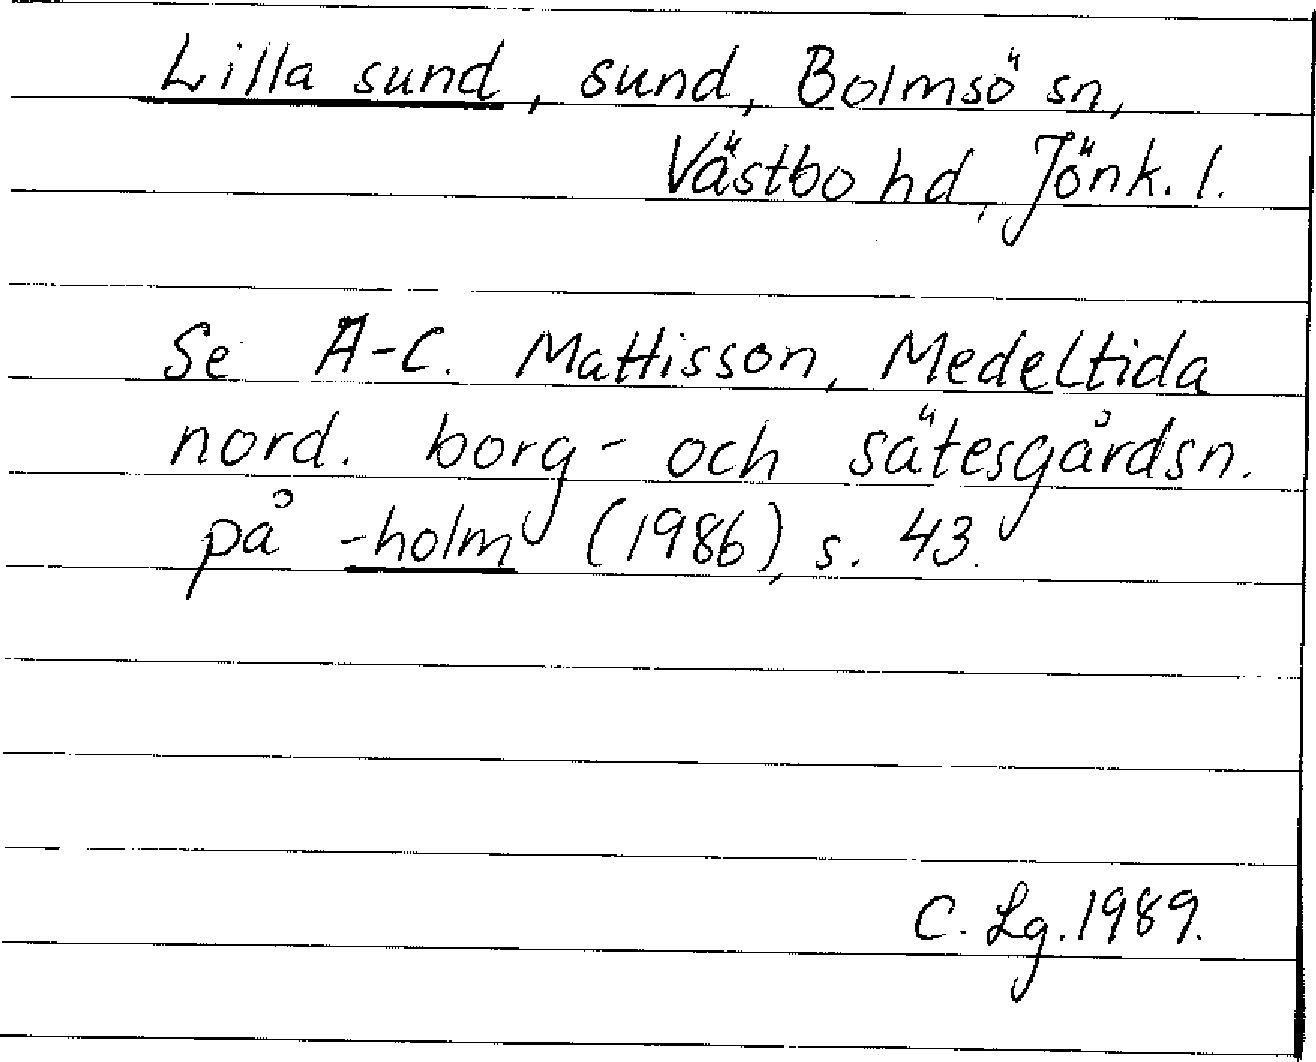 Lilla sund, sund, Bolmsö sn,
Västbo hd, Jönk. l.
Se A-C. Mattisson, Medeltida
nord. borg- och sätesgårdsn.
på -holm (1986), s. 43.
C. Lg. 1989.